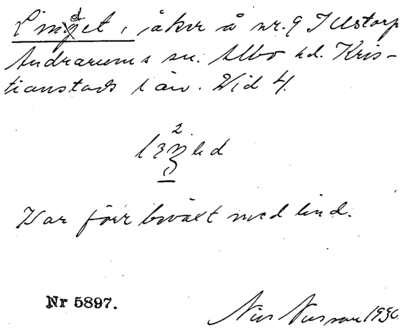 Linget, åker å nr. 9 Illstorp
Andrarums sn. Albo hd. Kris-
tianstads län. Vid 4.
Var förr beväxt med lind.
Nr 5897.
Nils Nilsson 1930